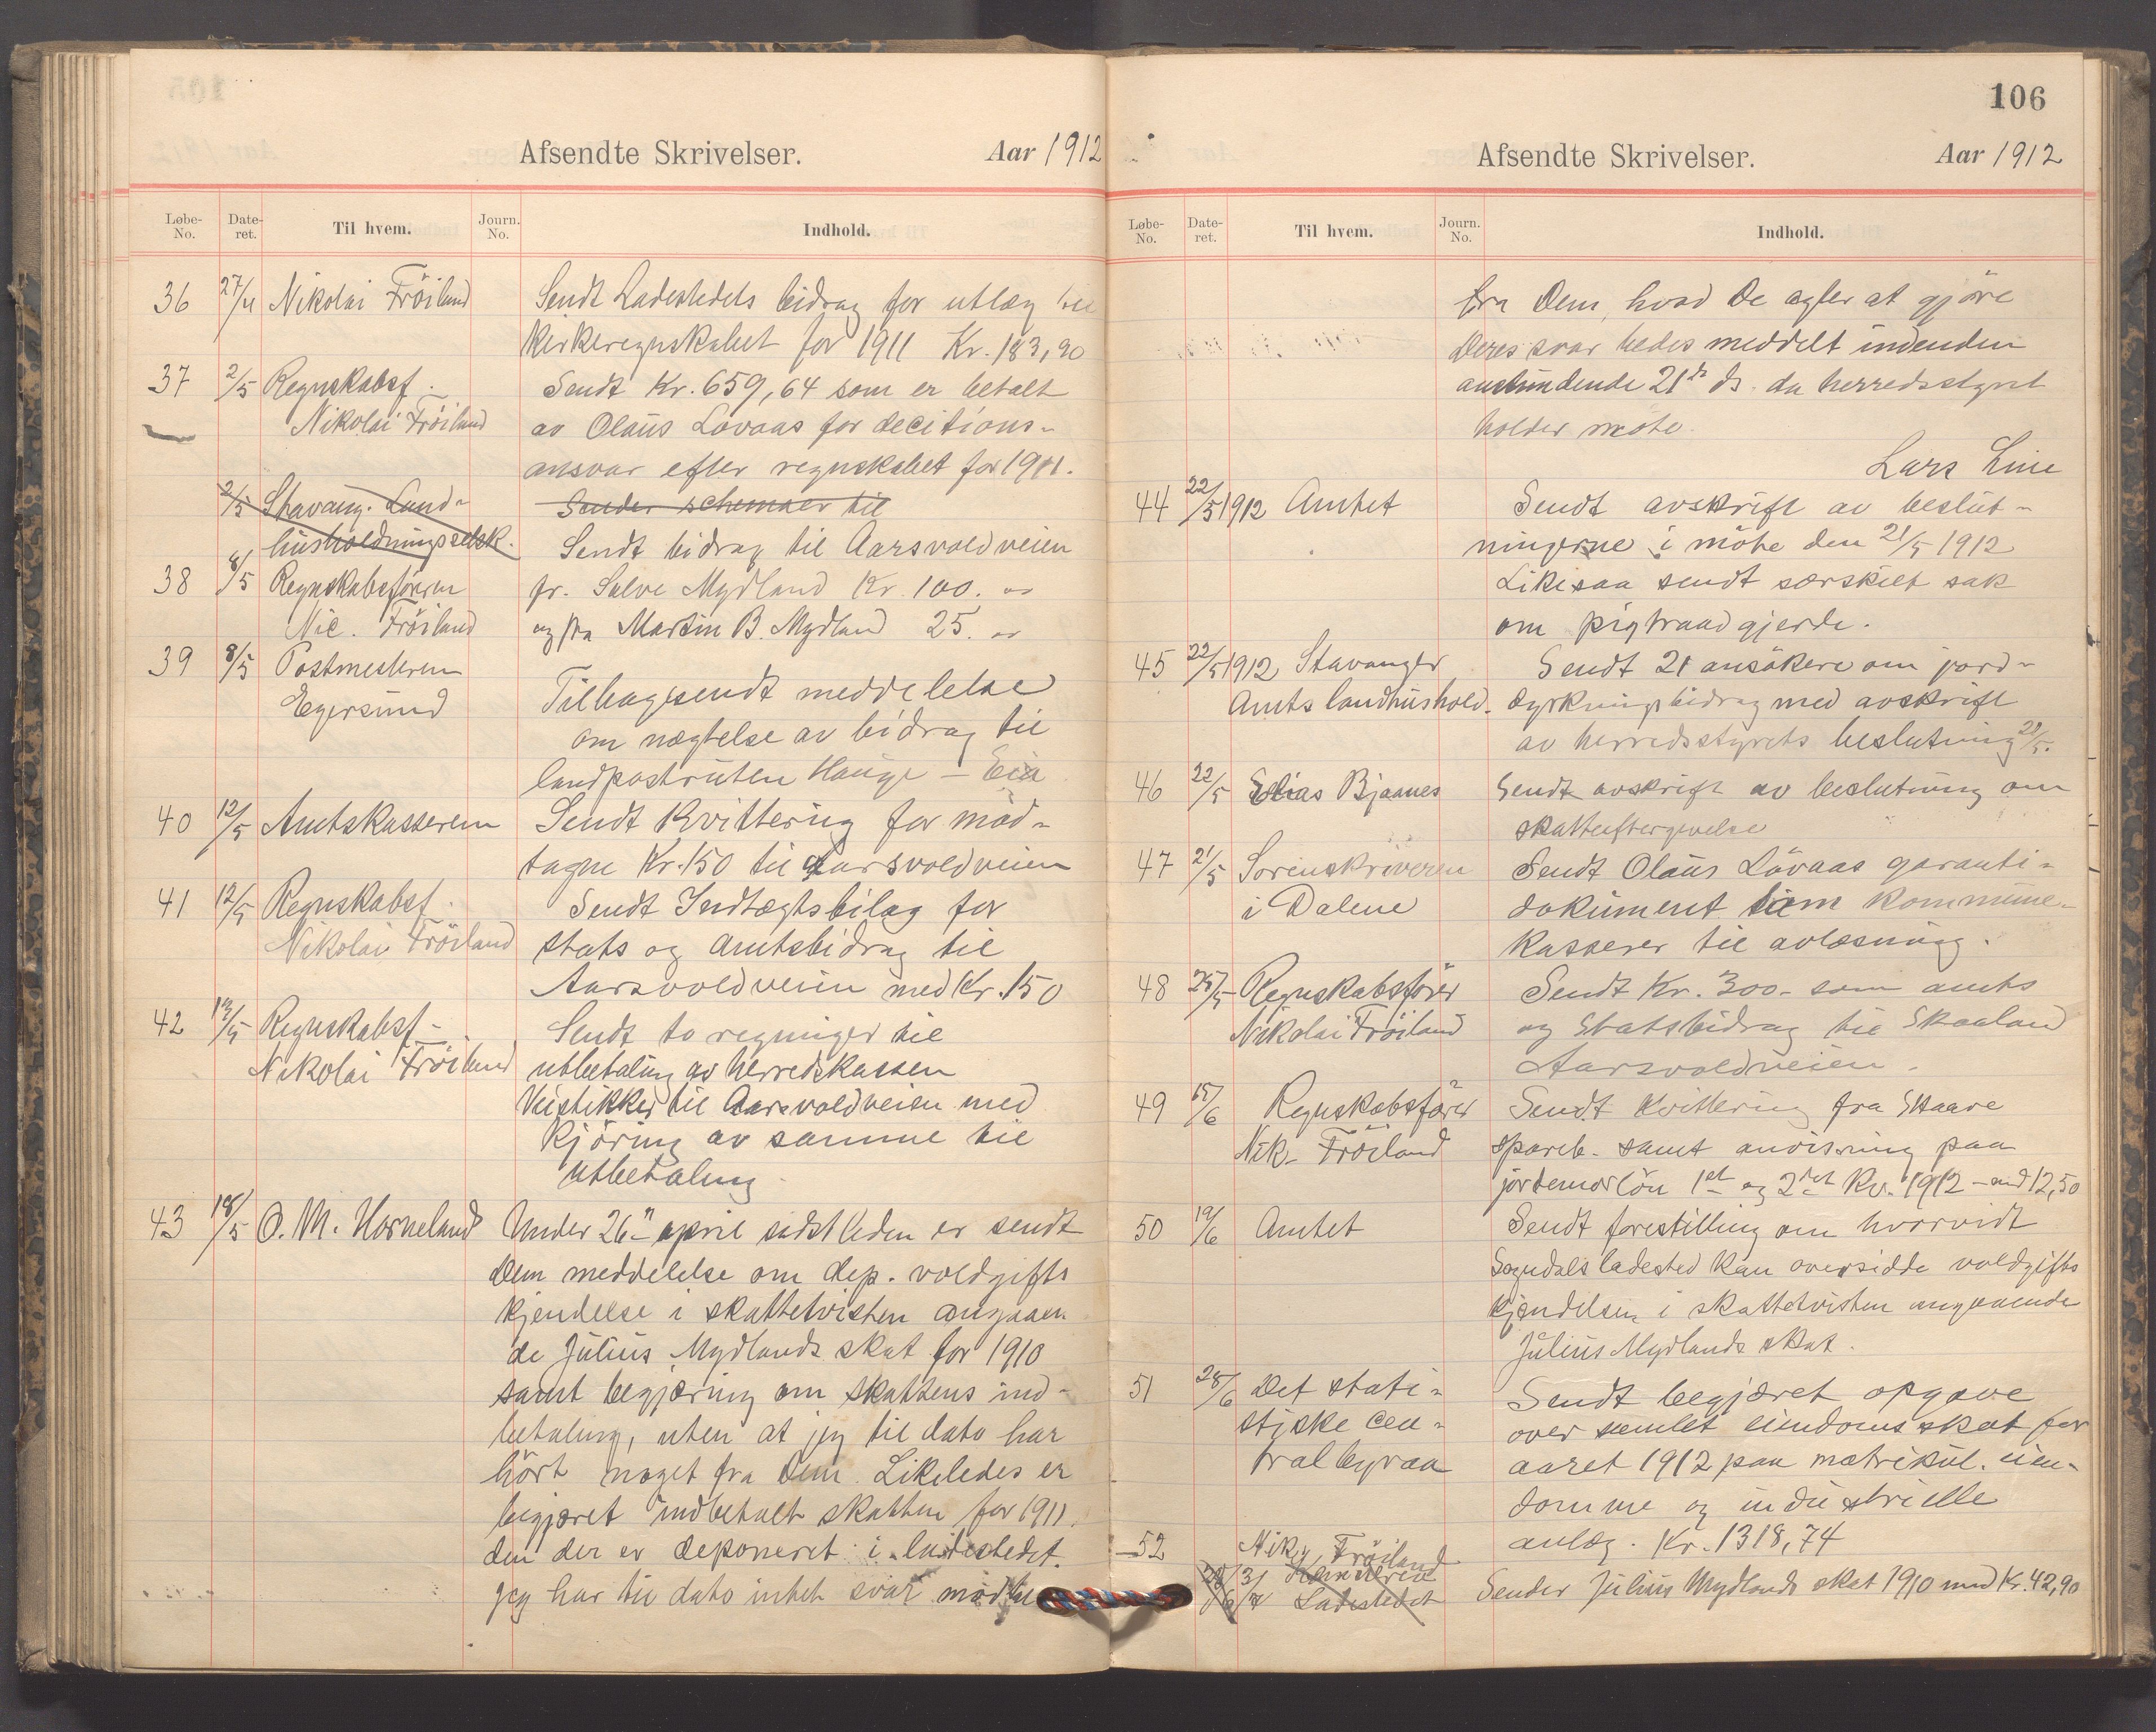 Afsendte Skrivelser. Aar 1912
Løbe-No. Date-ret. Til hvem. Journ. No. Indhold.
36 27/4 Nikolai Fröiland Sendt Ladestedets bidrag for utlæg til
kirkeregnskabet for 1911 Kr. 183,90
37 2/5 Regnskabsf. Sendt Kr. 659,64 som er betalt
Nikolai Fröiland av Olaus Lovaas for decitions-
ansvar efter regnskabet for 1911.
2/5 Stavang. Land- Sender schemaer til
husholdningsselsk. Sendt bidrag til Aarsvoldveien
38 8/5 Regnskabsförern fr. Salve Mydland Kr. 100. "
Nic. Fröiland og fra Martin B. Mydland 25. "
39 8/5 Postmesteren
Egersund Tilbagesendt meddelelse
om nægtelse av bidrag til
landpostruten Hauge – Eia
40 12/5 Amtskasseren Sendt Kvittering for mod-
tagne Kr. 150 til Aarsvoldveien
41 12/5 Regnskabsf. Sendt Indtægtsbilag for
Nikolai Fröiland stats og amtsbidrag til
Aarsvoldveien med Kr. 150
42 13/5 Regnskabsf- Sendt to regninger til
Nikolai Fröiland utbetaling av Herredskassen
Veistikker til Aarsvoldveien med
Kjöring av samme til
utbetaling
43 18/5 O. M. Horneland Under 26 april sidstleden er sendt
Dem meddelelse om dep. voldgifts
kjendelse i skattetvisten angaaen
de Julius Mydlands skat for 1910
samt begjæring om skattens ind-
betaling, uten at jeg til dato har
hört noget fra Dem. Likeledes er
begjæret indbetalt skatten for 1911.
den der er deponeret i ladestedet.
Jeg har til dato intet svar
106
Afsendte Skrivelser. Aar 1912
Løbe-No. Date-ret. Til hvem. Journ. No. Indhold.
fra Dem, hvad De agter at gjöre
Deres svar bedes meddelt indenden
anstundende 21de ds. da herredsstyret
holder möte.
Lars Line
44 22/5 1912 Amtet Sendt avskrift av beslut-
ningerne i möte den 21/5 1912
Likesaa sendt særskilt sak
om pigtraadgjerde.
45 22/5 1912 Stavanger Sendt 21 ansökere om jord-
Amts landhushold. dyrkningsbidrag med avskrift
av herredsstyrets beslutning 21/5.
46 22/5 Elias Bjaanes Sendt avskrift av beslutning om
skatteeftergivelse
47 21/5 Sorenskriveren Sendt Olaus Lövaas garanti-
i Dalene dokument som kommune-
kasserer til avlæsning.
48 25/5 Regnskabsförer Sendt Kr. 300.- som amts
Nikolai Fröiland og Statsbidrag til Skaaland
Aarsvoldveien.
49 15/6 Regnskabsförer Sendt Kvittering fra Skaare
Nik. Fröiland spareb. samt anvisning paa
jordemorlön 1ste og 2det Kv. 1912 – med 12,50
50 19/6 Amtet Sendt forestilling om hvorvidt
Sogndals ladested kan oversidde voldgifts
kjendelsen i skattetvisten angaaende
Julius Mydlands skat.
51 28/6 Det stati- Sendt begjæret opgave
stiske cen- over samlet eiendomsskat for
tralbyraa aaret 1912 paa matrikul. eien-
domme og industrielle
anlæg. Kr. 1318,74
52 Nik. Fröiland
Kæmneren
Ladestedet Sender Julius Mydlands skat 1910 med Kr. 42,90